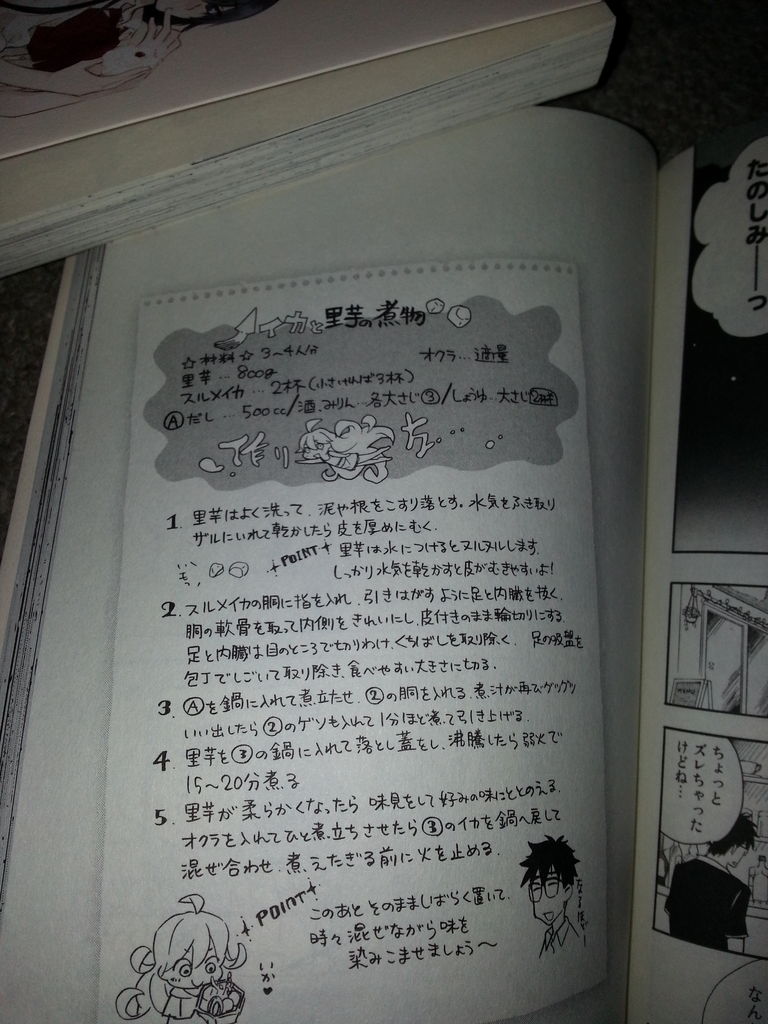 イカと里芋の煮物
☆材料☆ 3〜4人分
里芋…800g
オクラ…適量
スルメイカ…2杯(小さければ3杯)
Ⓐだし…500cc/酒、みりん…各大さじ③/しょうゆ…大さじ2杯
作り方…
1. 里芋はよく洗って、泥や根をこすり落とす。水気をふき取り
ザルにいれて乾かしたら皮を厚めにむく。
いもっ
POINT 里芋は水につけるとヌルヌルします。
しっかり水気を乾かすと皮がむきやすいよ!
2. スルメイカの胴に指を入れ、引きはがすように足と内臓を抜く。
胴の軟骨を取って内側をきれいにし、皮付きのまま輪切りにする。
足と内臓は目のところで切りわけ、くちばしを取り除く。足の吸盤を
包丁でしごいて取り除き、食べやすい大きさに切る。
3. Ⓐを鍋に入れて煮立たせ、②の胴を入れる。煮汁が再びグツグツ
いい出したら②のゲソも入れて1分ほど煮て引き上げる。
4. 里芋を③の鍋に入れて落とし蓋をし、沸騰したら弱火で
15〜20分煮る
5. 里芋が柔らかくなったら味見をして好みの味にととのえる。
オクラを入れてひと煮立ちさせたら③のイカを鍋へ戻して
混ぜ合わせ、煮えたぎる前に火を止める。
POINT
このあとそのまましばらく置いて、
時々混ぜながら味を
染みこませましょう〜
いか♥
なるほどー
たのしみ──っ
ちょっと
ズレちゃった
けどね…
なん